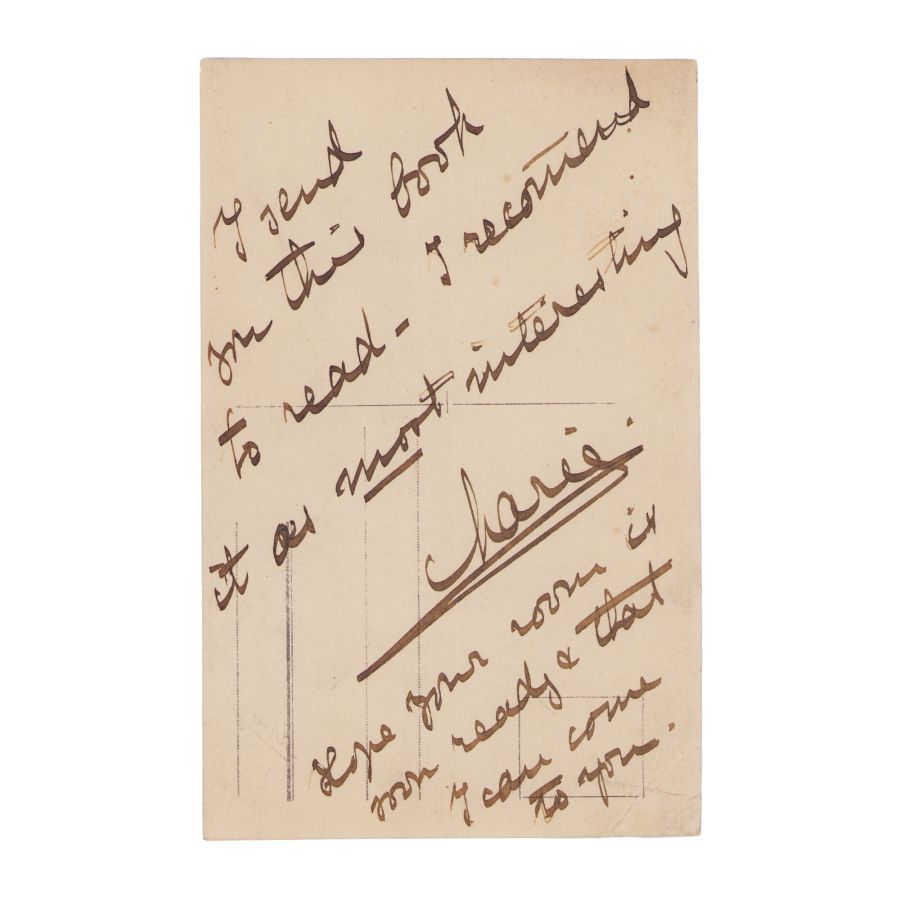 I send
you this book
to read - I recomend
it as most interesting
Marie.
Hope your room is
soon ready & that
I can come
to you.